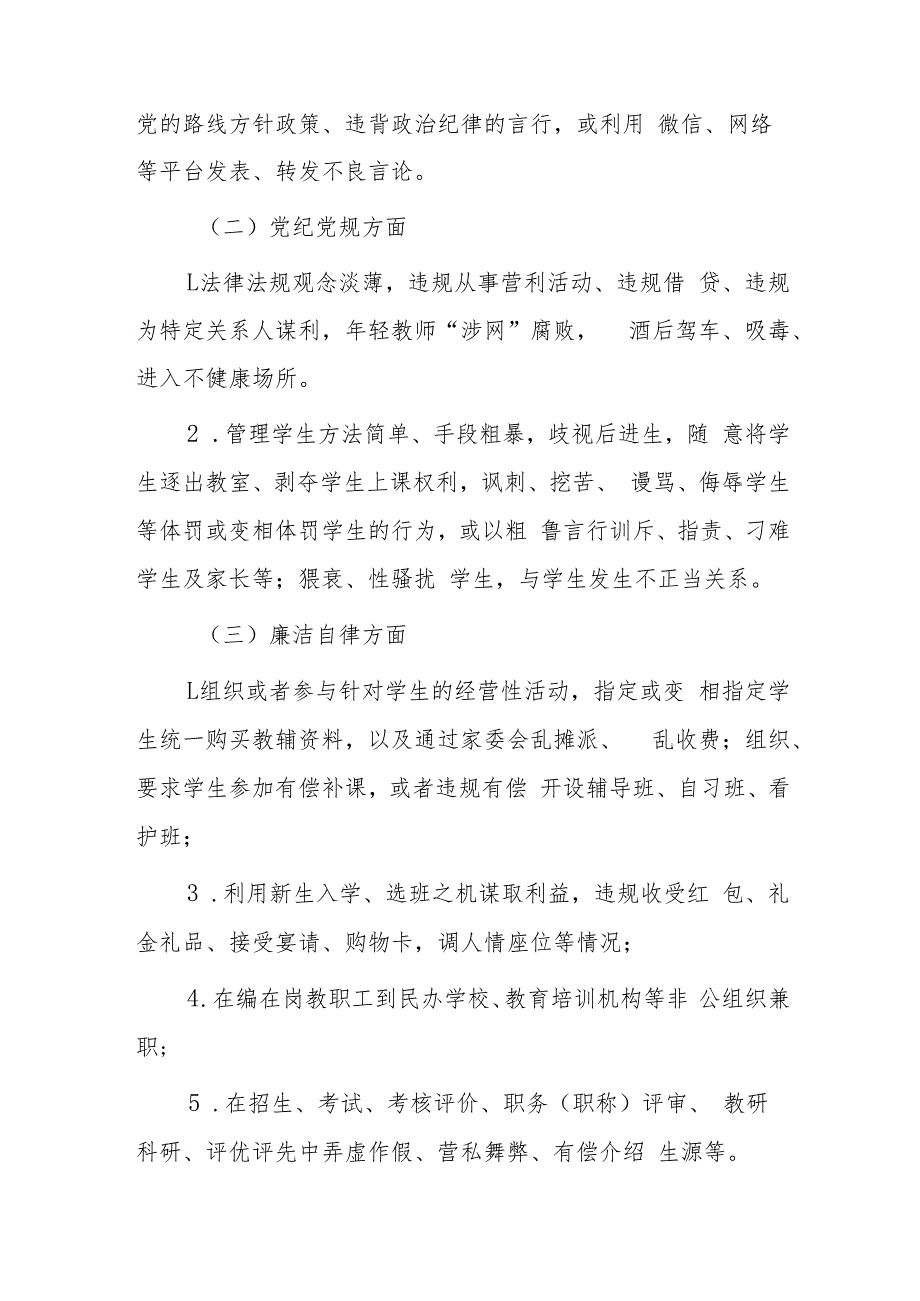 党的路线方针政策、违背政治纪律的言行，或利用 微信、网络
等平台发表、转发不良言论。
（二）党纪党规方面
L法律法规观念淡薄，违规从事营利活动、违规借 贷、违规
为特定关系人谋利，年轻教师“涉网”腐败， 酒后驾车、吸毒、
进入不健康场所。
2 .管理学生方法简单、手段粗暴，歧视后进生，随 意将学
生逐出教室、剥夺学生上课权利，讽刺、挖苦、 谩骂、侮辱学生
等体罚或变相体罚学生的行为，或以粗 鲁言行训斥、指责、刁难
学生及家长等；猥亵、性骚扰 学生，与学生发生不正当关系。
（三）廉洁自律方面
L组织或者参与针对学生的经营性活动，指定或变 相指定学
生统一购买教辅资料，以及通过家委会乱摊派、 乱收费；组织、
要求学生参加有偿补课，或者违规有偿 开设辅导班、自习班、看
护班；
3 .利用新生入学、选班之机谋取利益，违规收受红 包、礼
金礼品、接受宴请、购物卡，调人情座位等情况；
4.在编在岗教职工到民办学校、教育培训机构等非 公组织兼
职；
5 .在招生、考试、考核评价、职务（职称）评审、 教研
科研、评优评先中弄虚作假、营私舞弊、有偿介绍 生源等。